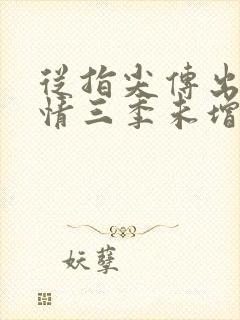 從指尖傳出
情三季未增
妖孽